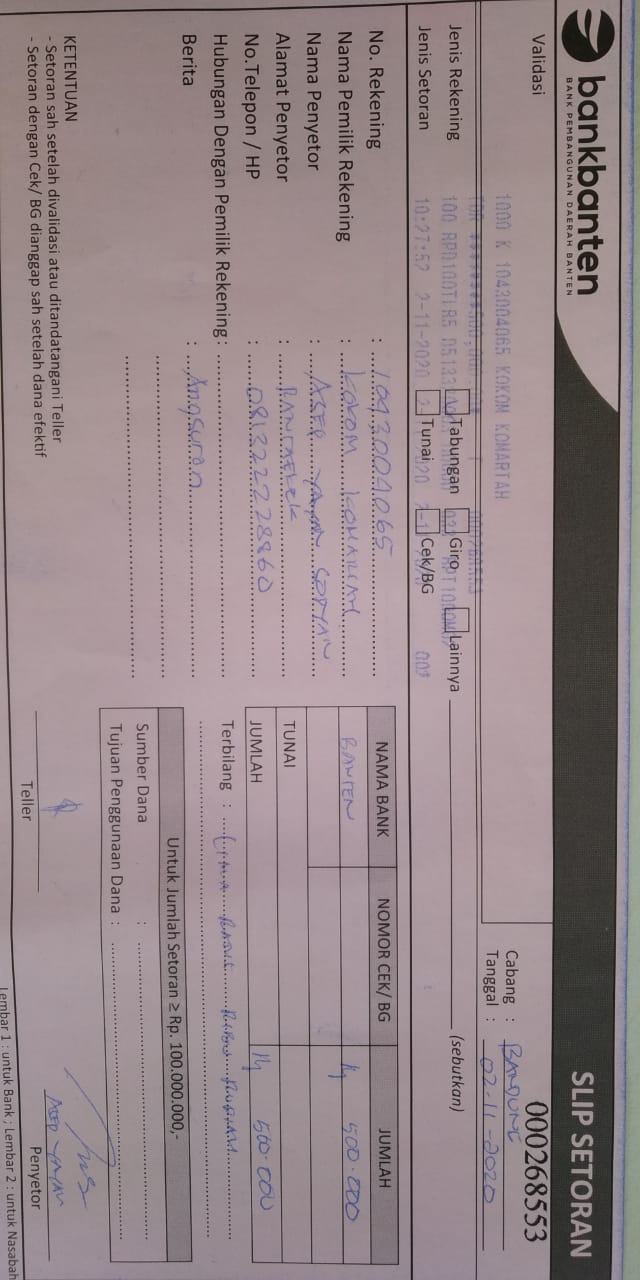 bankbanten
BANK PEMBANGUNAN DAERAH BANTEN
SLIP SETORAN
000268553
Validasi
1000 K 1043004065 KOKOM KOMARIAH
Cabang : BANDUNG
Tanggal : 02-11-2020
Jenis Rekening Tabungan Giro Lainnya (sebutkan)
Jenis Setoran Tunai Cek/BG
10:27:52 2-11-2020
No. Rekening : 1043004065
Nama Pemilik Rekening : KOKOM KOMARIAH
Nama Penyetor : ASEP
Alamat Penyetor : RANCAEKEK
No.Telepon / HP : 081322228860
Hubungan Dengan Pemilik Rekening :
Berita : Angsuran
NAMA BANK NOMOR CEK/ BG JUMLAH
BANTEN Rp 500.000
TUNAI
JUMLAH Rp 500.000
Terbilang : Lima Ratus Ribu Rupiah
Untuk Jumlah Setoran ≥ Rp. 100.000.000,-
Sumber Dana :
Tujuan Penggunaan Dana :
KETENTUAN
- Setoran sah setelah divalidasi atau ditandatangani Teller
- Setoran dengan Cek/ BG dianggap sah setelah dana efektif
Teller
Penyetor
Lembar 1 : untuk Bank ; Lembar 2 : untuk Nasabah